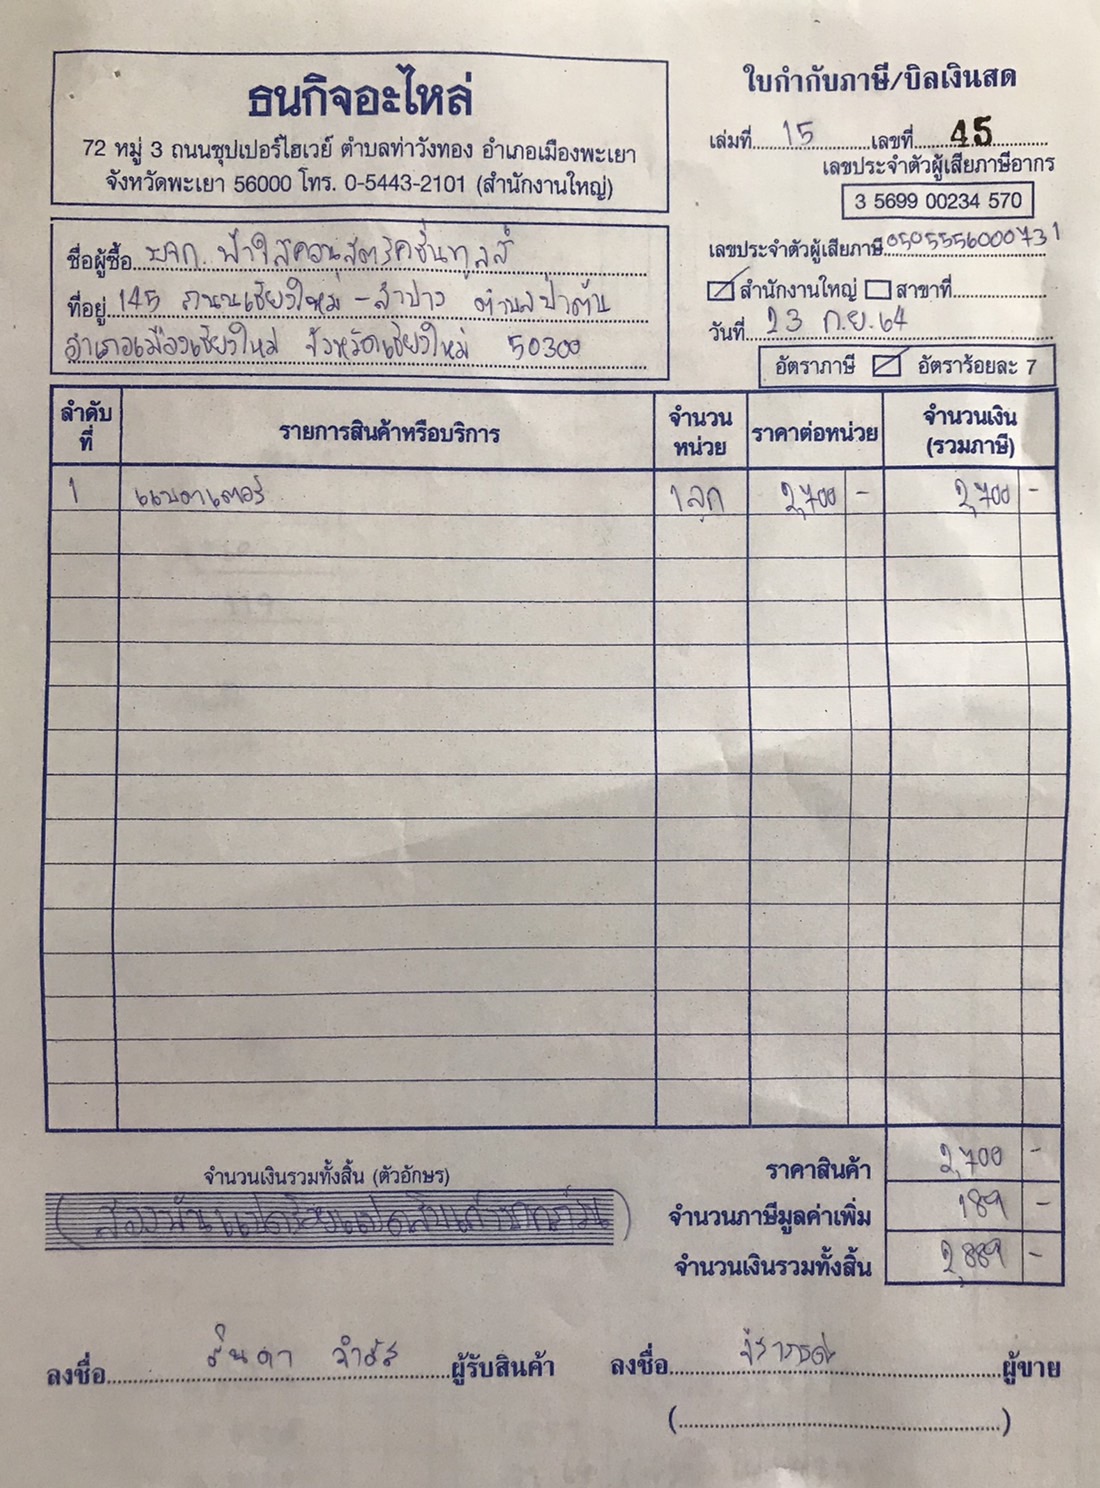 ธนกิจอะไหล่
72 หมู่ 3 ถนนซุปเปอร์ไฮเวย์ ตำบลท่าวังทอง อำเภอเมืองพะเยา
จังหวัดพะเยา 56000 โทร. 0-5443-2101 (สำนักงานใหญ่)
ใบกำกับภาษี/บิลเงินสด
เล่มที่ 15 เลขที่ 45
เลขประจำตัวผู้เสียภาษีอากร
3 5699 00234 570
ชื่อผู้ซื้อ หจก. ฟ้าใสคอนสตรัคชั่นทูลส์
ที่อยู่ 145 ถนนเชียงใหม่-ลำปาง ตำบลป่าตัน
อำเภอเมืองเชียงใหม่ จังหวัดเชียงใหม่ 50300
เลขประจำตัวผู้เสียภาษี 0505556000731
สำนักงานใหญ่ สาขาที่
วันที่ 23 ก.ย. 64
อัตราภาษี อัตราร้อยละ 7
ลำดับที่ รายการสินค้าหรือบริการ จำนวนหน่วย ราคาต่อหน่วย จำนวนเงิน (รวมภาษี)
1 แบตเตอรี่ 1 ลูก 2,700 - 2,700 -
ราคาสินค้า 2,700 -
จำนวนภาษีมูลค่าเพิ่ม 189 -
จำนวนเงินรวมทั้งสิ้น 2,889 -
จำนวนเงินรวมทั้งสิ้น (ตัวอักษร)
(สองพันแปดร้อยแปดสิบเก้าบาทถ้วน)
ลงชื่อ ผู้รับสินค้า
ลงชื่อ ผู้ขาย